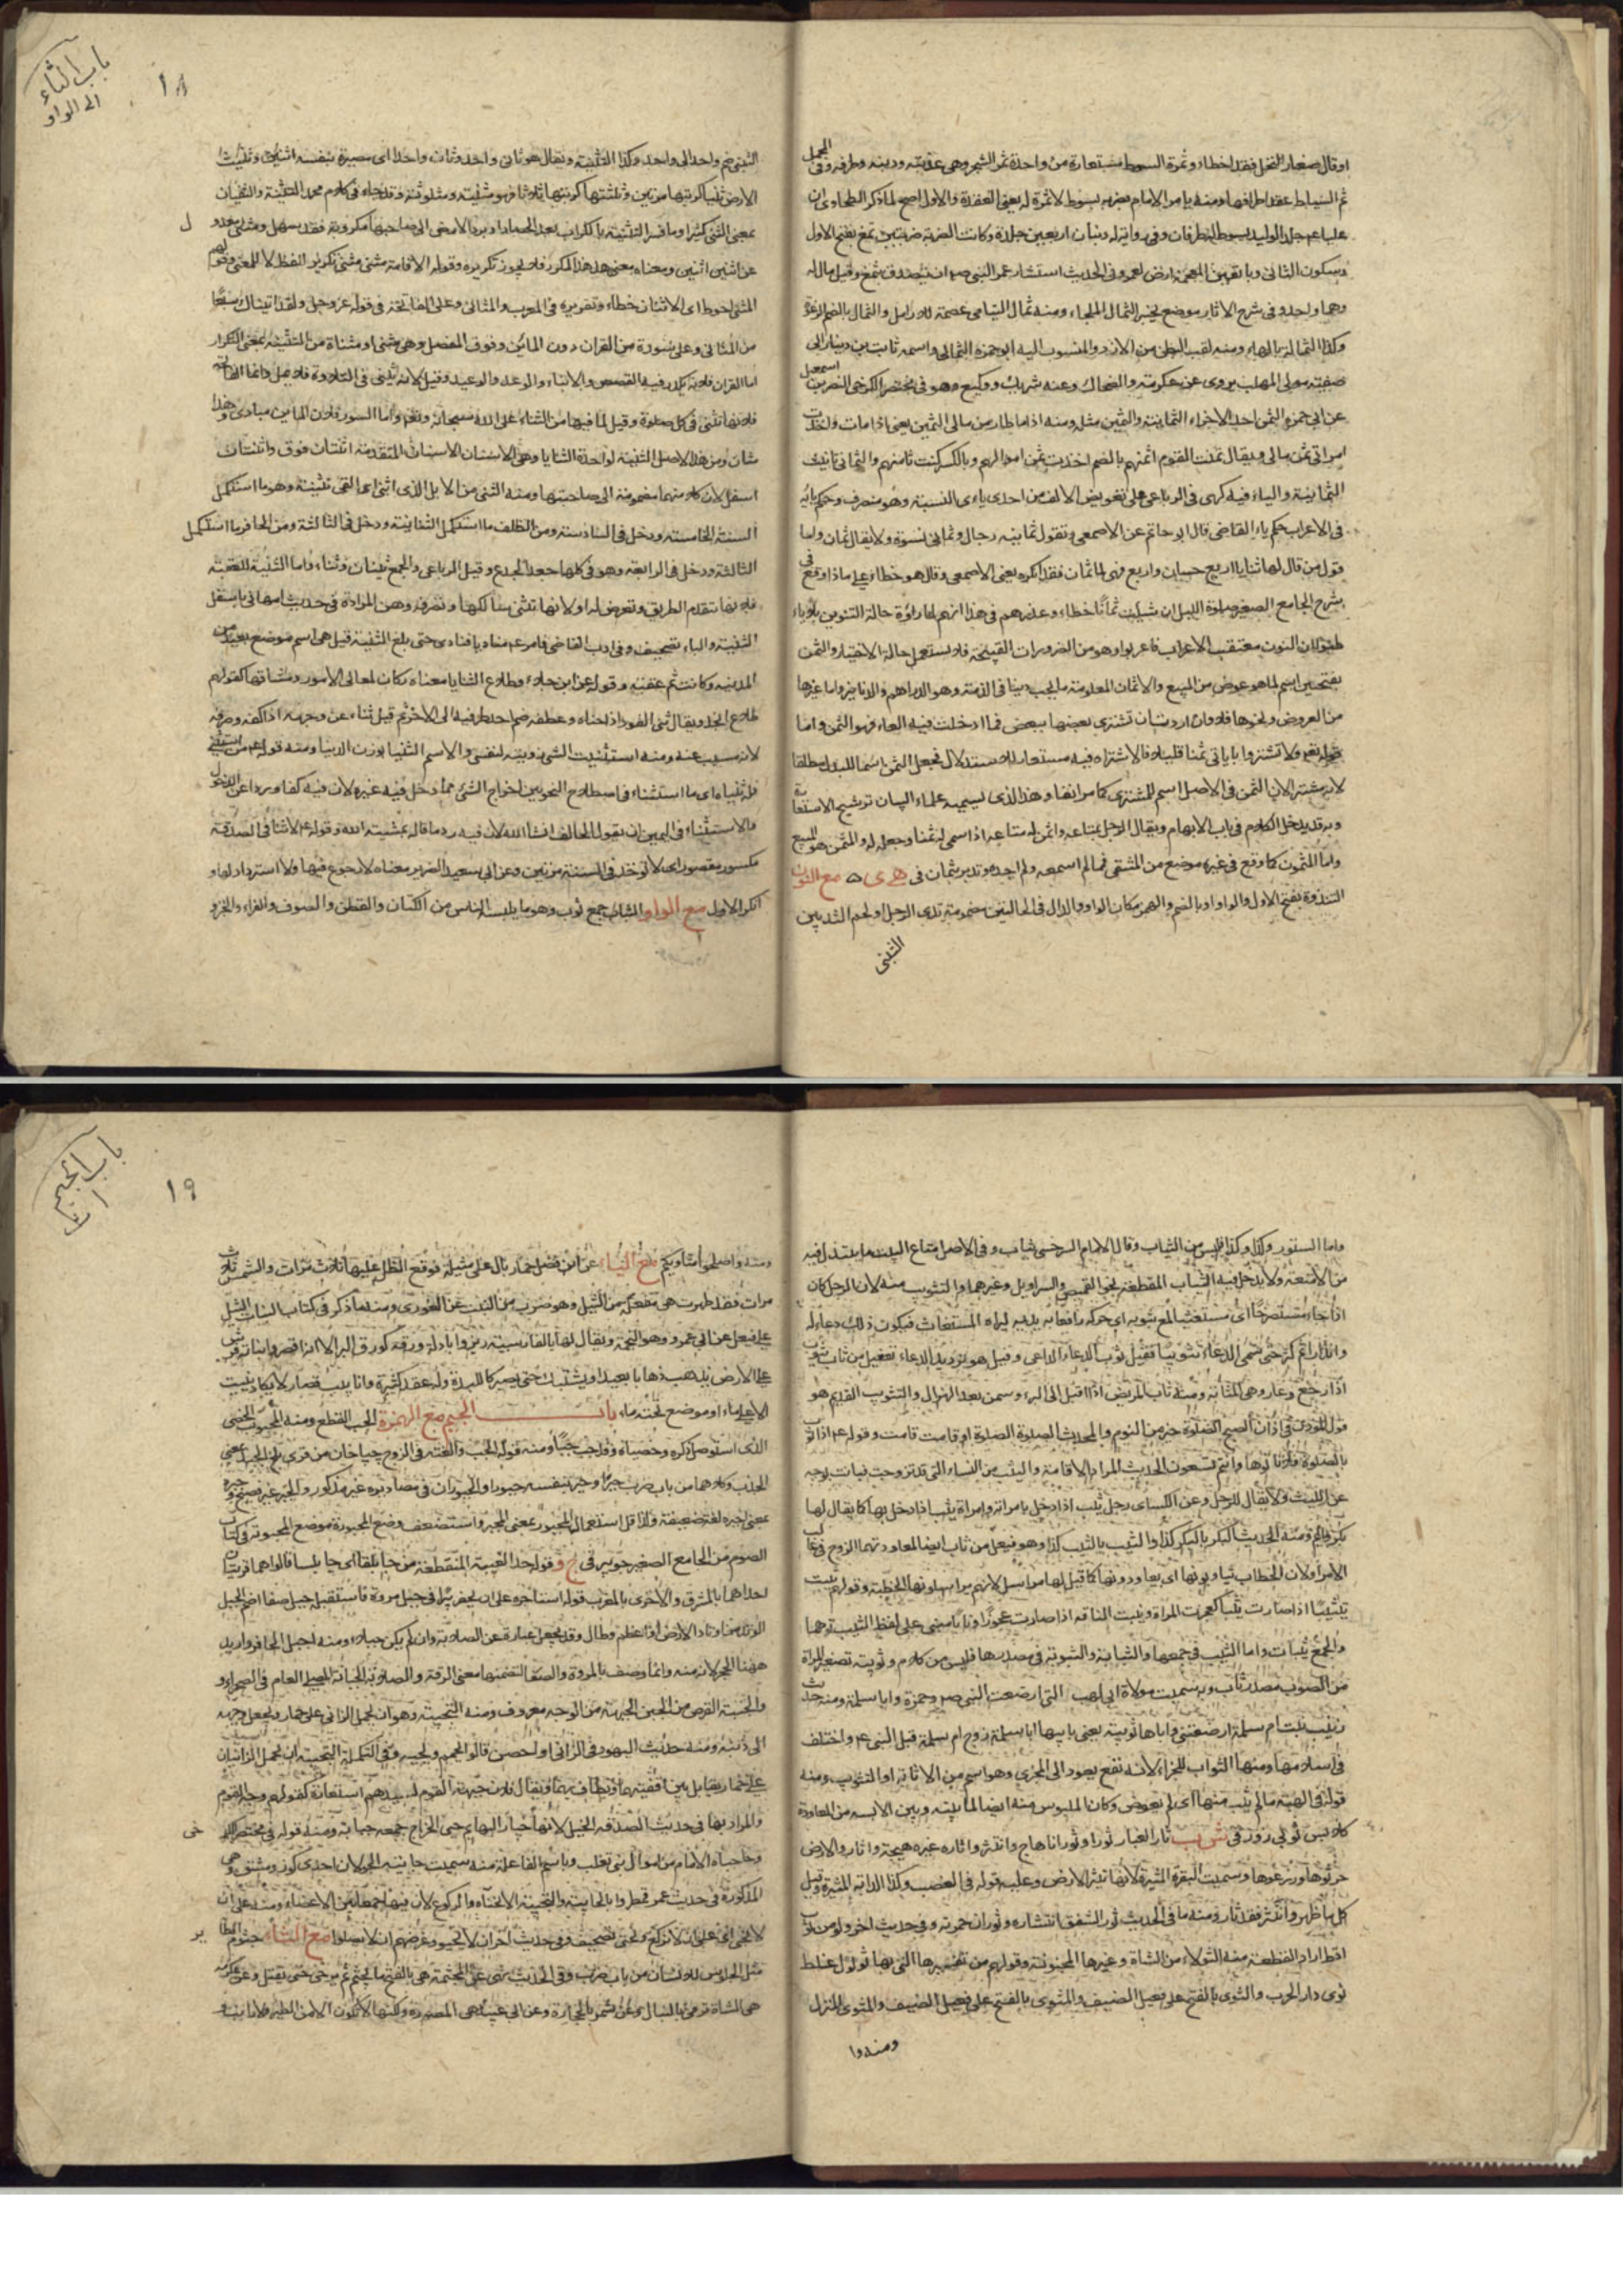 او قال صغار النخل فقد اخطاء وثمرة السوط مستعارة من واحدة ثمر الشجر وهى عذبته وذنبه وطرفه وفى المجمل
ثم السياط عقد اطرافها ومنه يامر الامام بضربه بسوط لا ثمرة له يعنى العقدة والاول اصح لما ذكر الطحاوى ان
عليا عم جلد الوليد بسوط له طرفان وفى رواية له ذنبان اربعين جلدة وكانت الضربة ضربتين ثمغ بفتح الاول
وسكون الثانى وبالغين المعجمة ارض لعمر وفى الحديث استشار عمر النبى صم ان يتصدق بثمغ وقيل مال له
وهما واحد وفى شرح الاثار موضع بخيبر الثمال الملجاء ومنه ثمال اليتامى عصمة للارامل والثمال بالضم الرغوة
وكذا الثمالة بالهاء ومنه لقب البطن من الازد والمنسوب اليه ابو حمزة الثمالى واسمه ثابت بن دينار ابى
صفية مولى المهلب يروى عن عكرمة والضحاك وعنه شريك ووكيع وهو فى مختصر الكرخى النضر بن اسمعيل
عن ابى حمزة الثمن احد الاجزاء الثمانية والثمين مثله ومنه اذا ما طار من مالى الثمين يعنى اذا مات واخذت
امراتى ثمن مالى ويقال ثمنت القوم اثمنهم بالضم اخذت ثمن اموالهم وبالكسر كنت ثامنهم والثمانى تانيث
الثمانية والياء فيه كهى فى الرباعى على تعويض الالف من احدى ياءى النسبة وهو منصرف وحكم يائه
فى الاعراب حكم ياء القاضى قال ابو حاتم عن الاصمعى وتقول ثمانية رجال وثمانى نسوة ولا يقال ثمان واما
قول من قال لها ثنايا اربع حسان واربع فهى لها ثمان فقد انكره يعنى الاصمعى وقال هو خطاء وعلى ماذا وقع فى
شرح الجامع الصغير صلوة الليل ان شئت ثمانا خطاء وعذرهم فى هذا انهم لما راوه حالة التنوين بلا ياء
ظنوا ان النون معتقب الاعراب فاعربوا وهو من الضرورات القبيحة فلا يستعمل حالة الاختيار والثمن
بفتحتين اسم لما هو عوض من المبيع والاثمان المعلومة ما يجب دينا فى الذمة وهو الدراهم والدنانير واما غيرها
من العروض ونحوها فلا وان اردت ان تشترى بعضها ببعض فما ادخلت فيه الباء فهو الثمن واما
قوله تعم ولا تشتروا باياتى ثمنا قليلا فالاشتراء فيه مستعار للاستبدال فجعل الثمن اسما للبدل مطلقا
لانه مشترى لان الثمن فى الاصل اسم للمشترى كما مر انفا وهذا الذى يسميه علماء البيان ترشيح الاستعارة
وبه قد يدخل الكلام فى باب الابهام ويقال اثمن الرجل بمتاعه واثمن له متاعه اذا سمى له ثمنا وجعله له والمثمن هو المبيع
واما المثمون كما وقع فى غير موضع من المنتقى فمما لم اسمعه ولم اجده وتدبر بثمان فى هى ى ه مع النون
الثندوة بفتح الاول والواو او بالضم والهمز مكان الواو والدال فى الحالتين مضمومة ثدى الرجل او لحم الثديين
الثنى
باب الثاء
الى الواو
١٨
الثنى ضم واحد الى واحد وكذا التثنية ويقال هو ثانى واحد وثان واحدا اى مصيره بنفسه اثنين وثنيت
الارض ثنيا كربتها مرتين وثلثتها كربتها ثلاثا فهو مثنية ومثلوثة وقد جاء فى كلام محمد التثنية والثنيان
بمعنى الثنى كثيرا ومافسر التثنية بالكراب بعد الحصاد او برد الارض الى صاحبها مكروبة فقد سهل ومثنى معدول
عن اثنين اثنين ومعناه معنى هذا المكرر فلا يجوز تكريره وقوله الاقامة مثنى مثنى تكرير للفظ لا للمعنى وقولهم
المثنى احوط اى الاثنان خطاء وتقريره فى المعرب والمثانى وعلى الفاتحة فى قوله عز وجل ولقد اتيناك سبعا
من المثانى وعلى سورة من القران دون المائين وفوق المفصل وهى مثنى او مثناة من التثنية بمعنى التكرار
اما القران فلانه يكرر فيه القصص والانباء والوعد والوعيد وقيل لانه يثنى فى التلاوة فلا يمل واما الفاتحة
فلانها تثنى فى كل صلوة وقيل لما فيها من الثناء على الله سبحانه وتعم واما السور فلان المائين مبادى وهذا
مثان ومن هذا الاصل الثنية لواحدة الثنايا وهى الاسنان المتقدمة اثنتان فوق واثنتان
اسفل لان كلا منهما مضمومة الى صاحبتها ومنه الثنى من الابل الذى اثنى اى القى ثنيته وهو ما استكمل
السنة الخامسة ودخل فى السادسة ومن الظلف ما استكمل الثانية ودخل فى الثالثة ومن الحافر ما استكمل
الثالثة ودخل فى الرابعة وهو فى كلها بعد الجذع وقبل الرباعى والجمع ثنيان وثناء واما الثنية للعقبة
فلانها تتقدم الطريق وتعرض له او لانها تثنى سالكها وتصرفه وهى المرادة فى حديث ام هانى باسفل
الثنية والباء تصحيف وفى ادب القاضى فامر عم مناديا فنادى حتى بلغ الثنية قيل هى اسم موضع بعيد من
المدينة وكانت ثم عقبة وقوله عن ابن جلاء وطلاع الثنايا معناه ركاب لمعالى الامور ومشاقها كقولهم
طلاع انجد ويقال ثنى العود اذا حناه وعطفه ضم احد طرفيه الى الاخر ثم قيل ثناه عن وجهه اذا كفه وصرفه
لانه مسبب عنه ومنه استثنيت الشئ زويته لنفسى والاسم الثنيا بوزن الدنيا ومنه قوله عم من استثنى
فله ثنياه اى ما استثناه والاستثناء فى اصطلاح النحويين اخراج الشئ مما دخل فيه غيره لان فيه كفا وردا عن الدخول
والاستثناء فى اليمين ان يقول الحالف انشا الله لان فيه رد ما قاله بمشيئة الله وقوله عم لا ثنا فى الصدقة
مكسور مقصور اى لا توخذ فى السنة مرتين وعن ابى سعيد الضرير معناه لا رجوع فيها ولا استرداد لها و
انكر الاول مع الواو الثياب جمع ثوب وهو ما يلبسه الناس من الكتان والقطن والصوف والفراء والخز و
واما الستور وكذا وكذا فليس من الثياب وقال الامام السرخسى ثياب وفى الاصل متاع البيت ما يبتذل فيه
من الامتعة ولا يدخل فيه الثياب المقطعة نحو القميص والسراويل وغيرهما والتثويب منه لان الرجل كان
اذا جاء مستصرخا اى مستغيثا لمع بثوبه اى حركه رافعا به يديه ليراه المستغاث فيكون ذلك دعاء له
وانذارا ثم كثر حتى سمى الدعاء تثويبا فقيل ثوب الداعى وقيل هو ترديد الدعاء تفعيل من ثاب يثوب
اذا رجع وعاد وهى المثابة ومنه ثاب المريض اذا اقبل الى البرء وسمن بعد الهزال والتثويب القديم هو
قول المؤذن فى اذان الصبح الصلوة خير من النوم والمحدث الصلوة الصلوة او قامت قامت وقوله عم اذا ثوب
بالصلوة فلا تاتوها وانتم تسعون الحديث المراد به الاقامة والثيب من النساء التى قد تزوجت فبانت بوجه
عن الليث ولا يقال للرجل وعن الكسائى رجل ثيب اذا دخل بامراته وامراة ثيب اذا دخل بها كما يقال لها
بكر وايم ومنه الحديث البكر بالبكر كذا والثيب بالثيب كذا وهو فيعل من ثاب ايضا لمعاودتهما الزوج فى غالب
الامر او لان الخطاب يثاوبونها اى يعاودونها كما قيل لها مراسل لانهم يراسلونها الخطبة وقولهم ثيبت
تثييبا اذا صارت ثيبا كعجزت المراة ونيبت الناقة اذا صارت عجوزا ونابا مبنى على لفظ الثيب توهما
والجمع ثيبات واما الثيب فى جمعها والثيابة والثيوبة فى مصدرها فليس من كلامهم وثويبة تصغير المراة
من الثوب مصدر ثاب وبه سميت مولاة ابى لهب التى ارضعت النبى صم وحمزة وابا سلمة ومنه حديث
زينب بنت ام سلمة ارضعتنى واباها ثويبة يعنى بابيها ابا سلمة زوج ام سلمة قبل النبى عم واختلف
فى اسلامها ومنها الثواب للجزاء لانه نفع يعود الى المجزى وهو اسم من الاثابة او التثويب ومنه
قوله فى الهبة ما لم يثب منها اى لم يعوض وكان الملبوس منه ايضا لما بينه وبين اللابس من المعاودة
كلابس ثوبى زور فى ش ب ثار الغبار ثورا وثورانا هاج وانتشر واثاره غيره هيجه واثاروا الارض
حرثوها وزرعوها وسميت البقرة المثيرة لانها تثير الارض وعليه قوله فى الغصب وكذا الدابة المثيرة وقيل
كل ما ظهر وانتشر فقد ثار ومنه ما فى الحديث ثور الشفق انتشاره وثوران حمرته وفى حديث اخر ولو من ثور
اقط اراد القطعة منه الثولاء من الشاة وغيرها المجنونة وقولهم من تفسيرها التى بها ثؤلول غلط
ثوى دار الحرب والثوى بالفتح على فعيل الضيف والمثوى بالفتح المنزل
ومنه وا
باب الجيم
١٩
ومنه واصلحوا مثاويكم مع الياء عن ابن فضل حمار بال على مثيلة فوقع الظل عليها ثلاث مرات والشمس ثلاث
مرات فقد طهرت هى مفعلة من الثيل وهو ضرب من النبت عن الغورى ومنه ما ذكر فى كتاب النبات الثيل
على فيعل عن ابى عمرو وهو النجمة ويقال لها بالفارسية ورقه كورق البر الا انه اقصر ونباته فرش
على الارض يذهب ذهابا بعيدا ويشتبك حتى يصير كاللبدة وله عقد كثيرة وانابيب قصار لا يكاد ينبت
الا على ماء او موضع تحته ماء باب الجيم مع الهمزة الجب القطع ومنه المجبوب الخصى
الذى استوصل ذكره وخصياه وقد جب جبا ومنه
الجذب وكلاهما من باب ضرب جبرا وجبر بنفسه جبورا والجبران فى مصادره غير مذكور والجبر غير فصيح وجبره
بمعنى اجبره لغة ضعيفة ولذا قل استعمال المجبور بمعنى المجبر واستضعف وضع المجبورة موضع المجبرة فى كتاب
الصوم من الجامع الصغير جويبر فى ج و وقوله حد الغيبة المنقطعة من جابلقا الى جابلسا قالوا هما قريتان
احداهما بالمشرق والاخرى بالمغرب قوله استاجره على ان يحفر بئرا فى جبل مروة فاستقبله جبل صفا اصم الجبل
الوتد من اوتاد الارض اذا عظم وطال وقد يجعل عبارة عن الصلابة وان لم يكن جبلا ومنه اجبل الحافر واريد
ههنا الحجر لانه منه وانما وصف بالمروة والصفا لتضمنهما معنى الرقة والصلابة الجبانة المصلى العام فى الصحراء و
والجبنة القرص من الجبن الجبهة من الوجه معروف ومنه التجبيه وهو ان يحمل الزانى على حمار ويجعل وجهه
الى ذنبه ومنه حديث اليهود فى الزانى اذا احصن قالوا يحمم ويجبه وفى التكملة التجبيه ان يحمل الزانيان
على حمار يقابل بين اقفيتهما ويطاف بهما ويقال فلان جبهة القوم لسيدهم استعارة كقولهم وجه القوم
والمراد بها فى حديث الصدقة الخيل لانها خيار البهايم جبى الخراج جمعه جباية ومنه قوله فى مختصر الكرخى
وما جباه الامام من اموال بنى تغلب وباسم الفاعلة منه سميت جابية الجولان احدى كور دمشق وهى
المذكورة فى حديث عمر قحطوا بالجابية والتجبية الانحناء والركوع لان فيها جمعا بين الاعضاء ومنه على ان
لا يجبى اى على ان لا يركع ويحنى تصحيف وفى حديث اخر ان لا يجبوا وغرضهم ان لا يصلوا مع الثاء جثوم الطاير
مثل الجلوس للانسان من باب ضرب وفى الحديث نهى عن المجثمة هى بالفتح ما يجثم ثم يرمى حتى يقتل وعن عكرمة
هى الشاة ترمى بالنبال وعن شمر بالحجارة وعن ابى عبيد هى المصبورة ولكنها لا تكون الا من الطير والارانب و